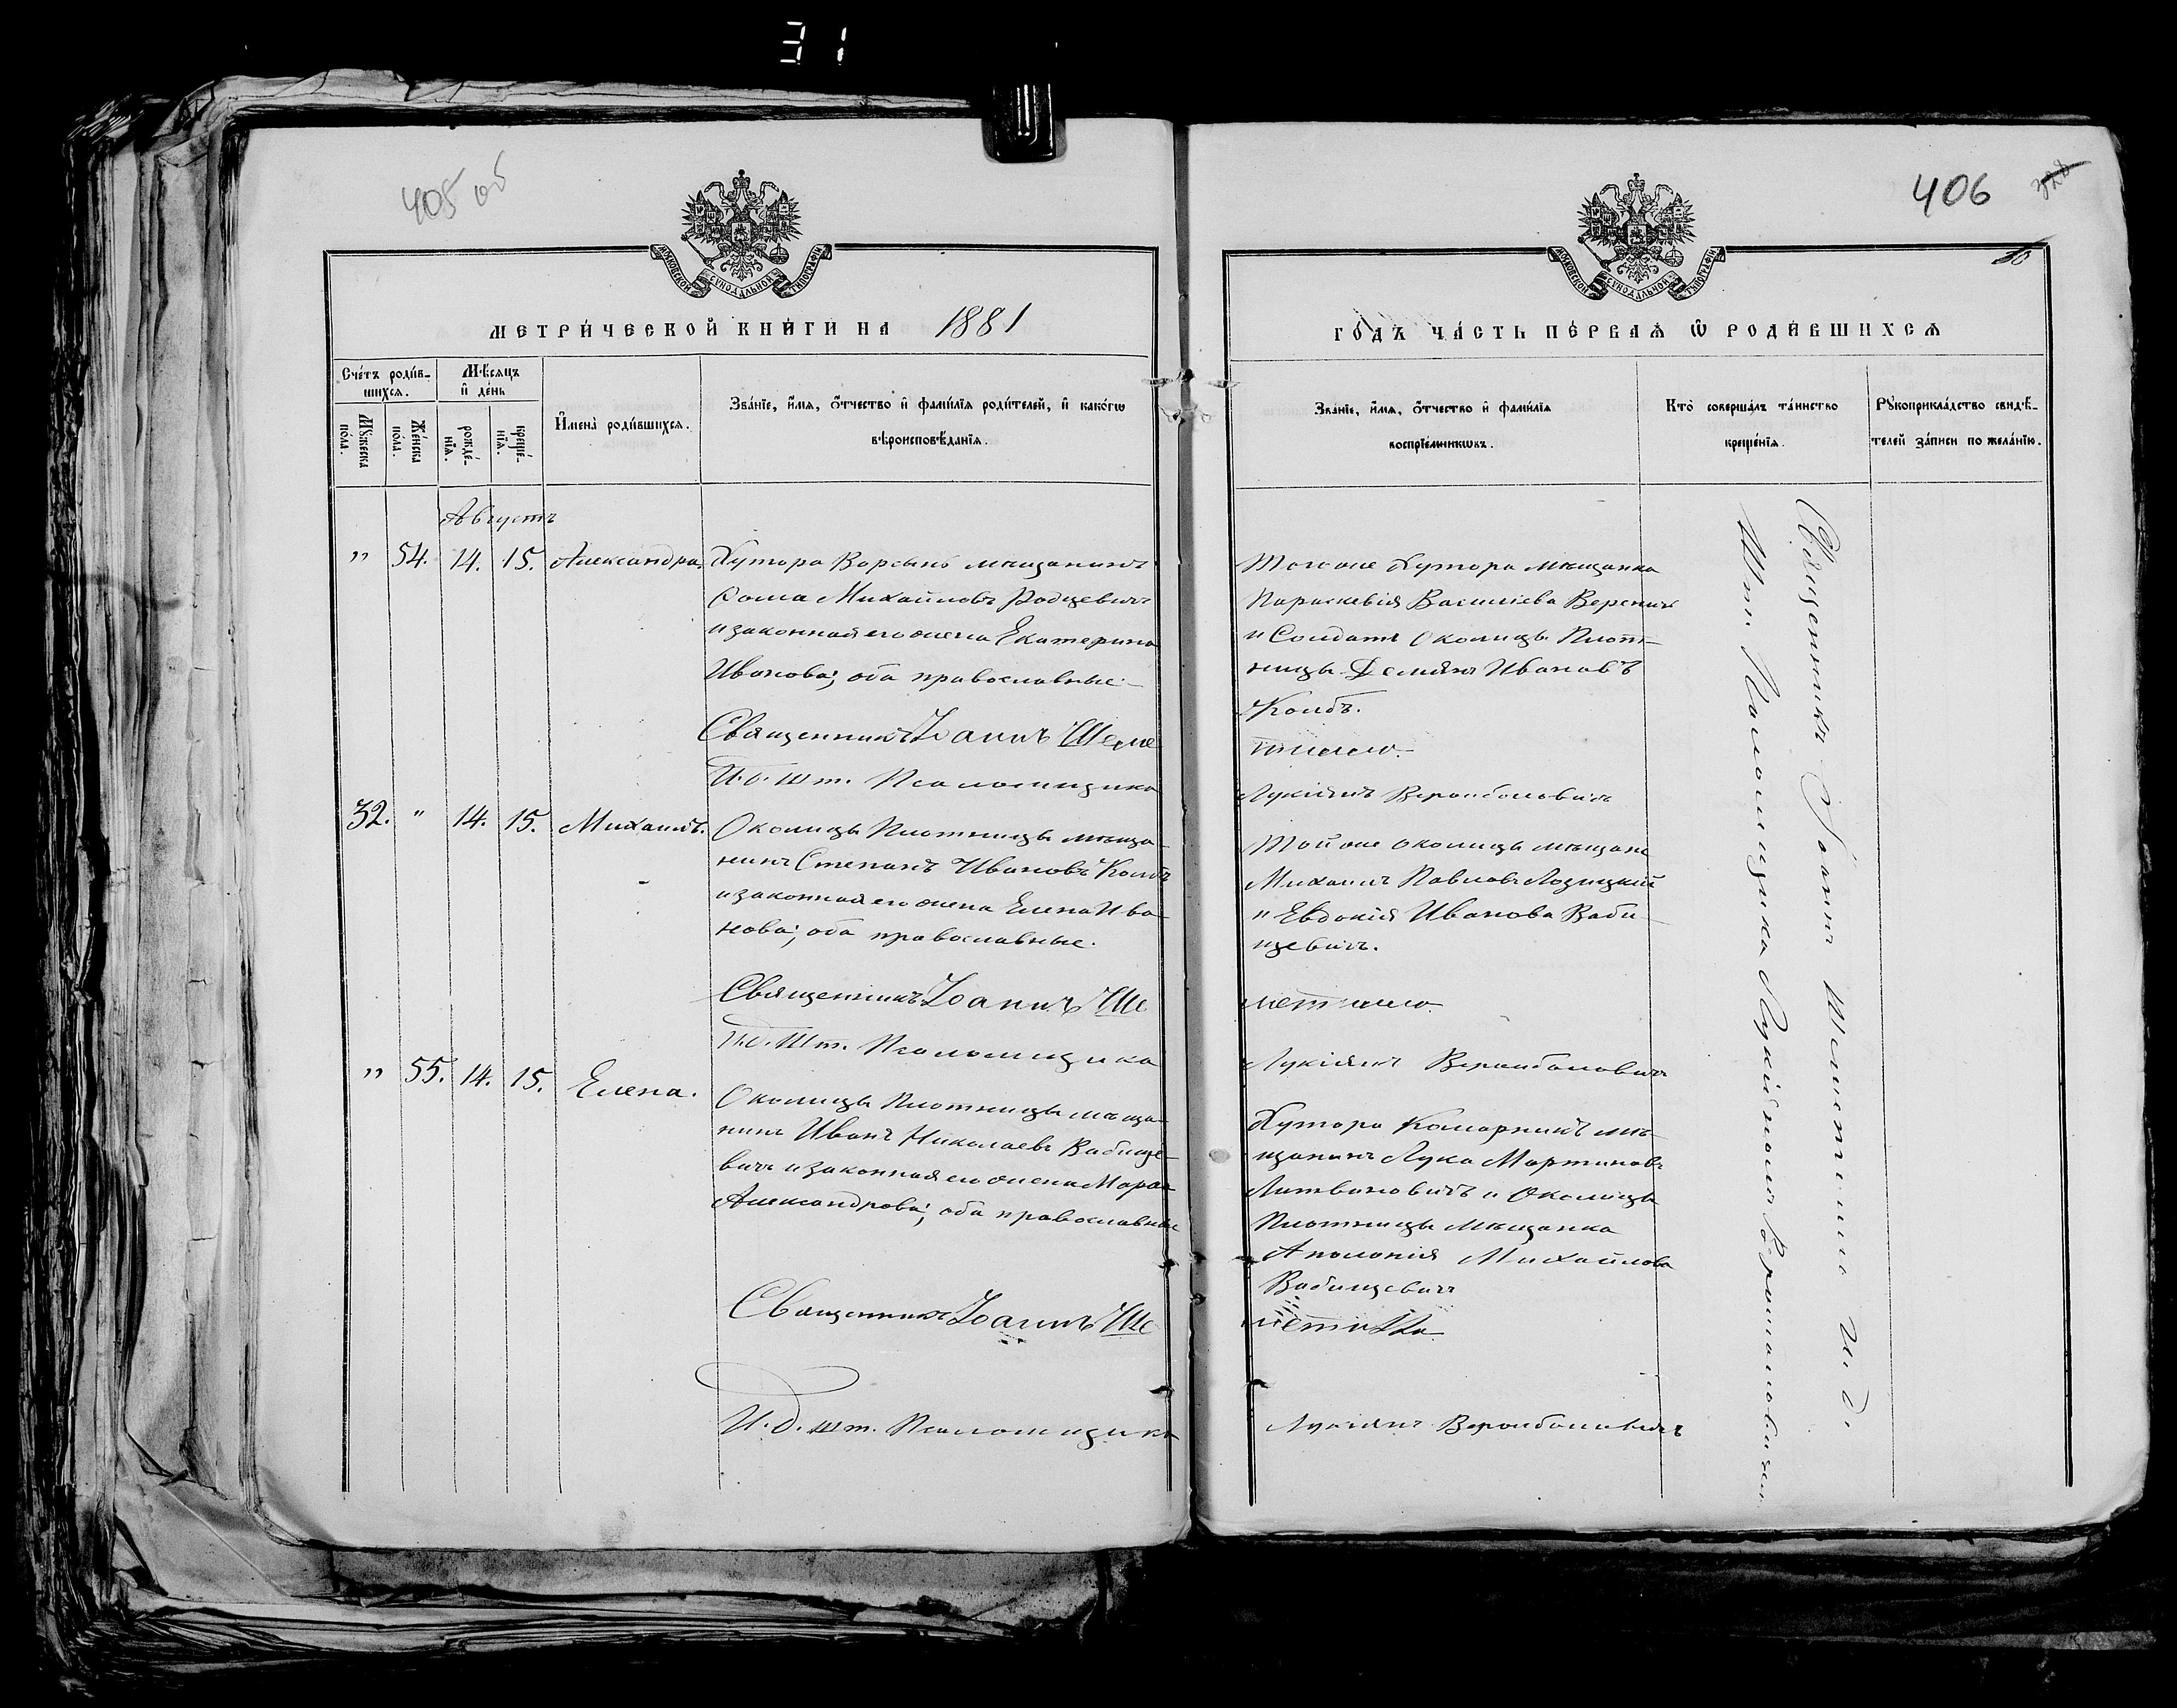 31
405 об
МОСКОВСКОЙ СУНОДАЛЬНОЙ ТИПОГРАФІИ
МЕТРИ́ЧЕСКОЙ КНИ́ГИ НА 1881
Сче́тъ роди́в-
шихся.
Мѣ́сяцъ
и҆ де́нь
Му́жеска
по́ла.
Же́нска
по́ла.
рожде́-
нїѧ.
креще́-
нїѧ.
И҆мена̀ роди́вшихся.
Зва́нїе, и҆́мѧ, ѻ҆́тчество и҆ фами́лїѧ роди́телей, и҆ како́гѡ
вѣроисповѣ́данїѧ.
Августъ
" 54. 14. 15. Александра. Хутора Ворсынь мѣщанинъ
Ѳома Михайловъ Родцевичъ
и законная его жена Екатерина
Иванова; оба православные.
Священникъ Іоаннъ Шеме
И. д. шт. Псаломщика
32. " 14. 15. Михаилъ. Околицы Плотницы мѣща-
нинъ Степанъ Ивановъ Колбъ
и законная его жена Елена Ива-
нова; оба православные.
Священникъ Іоаннъ Ше
И. д. шт. Псаломщика
" 55. 14. 15. Елена. Околицы Плотницы мѣща-
нинъ Иванъ Николаевъ Вабище-
вичъ и законная его жена Марія
Александрова; оба православные
Священникъ Іоаннъ Ше
И. д. шт. Псаломщика
406
МОСКОВСКОЙ СУНОДАЛЬНОЙ ТИПОГРАФІИ
ГО́ДЪ ЧА́СТЬ ПЕ́РВАѦ Ѡ҆ РОДИ́ВШИХСѦ
Зва́нїе, и҆́мѧ, ѻ҆́тчество и҆ фами́лїѧ
воспрїе́мникѡвъ.
Кто̀ соверша́лъ та́инство
креще́нїѧ.
Рꙋкоприкла́дство свидѣ́-
телей за́писи по жела́нїю.
Тогоже Хутора мѣщанка
Параскевія Василіева Веренич
и Солдатъ Околицы Плот-
ницы Демянъ Ивановъ
Колбъ.
тилло.
Лукіянъ Веромболовичъ
Той же околицы мѣщане
Михаилъ Павловъ Лозицкій
и Евдокія Иванова Ваби-
щевичъ.
метилло.
Лукіянъ Верамбаловичъ
Хутора Комарникъ мѣ-
щанинъ Лука Мартиновъ
Литвиновичъ и Околицы
Плотницы мѣщанка
Аполонія Михайлова
Вабищевичъ
Лукіянъ Верамбаловичъ
Священникъ Іоаннъ Шеметилло И. д.
Шт. Псаломщика